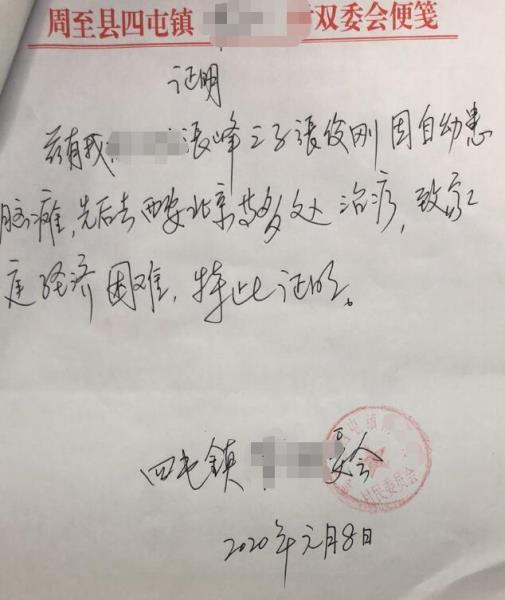 周至县四屯镇 双委会便笺
证明
兹有我 张峰之子张俊刚因自幼患
脑瘫,先后去西安北京等多处治疗,致家
庭经济困难,特此证明。
四屯镇 委会
村民委员会
2020年元月8日